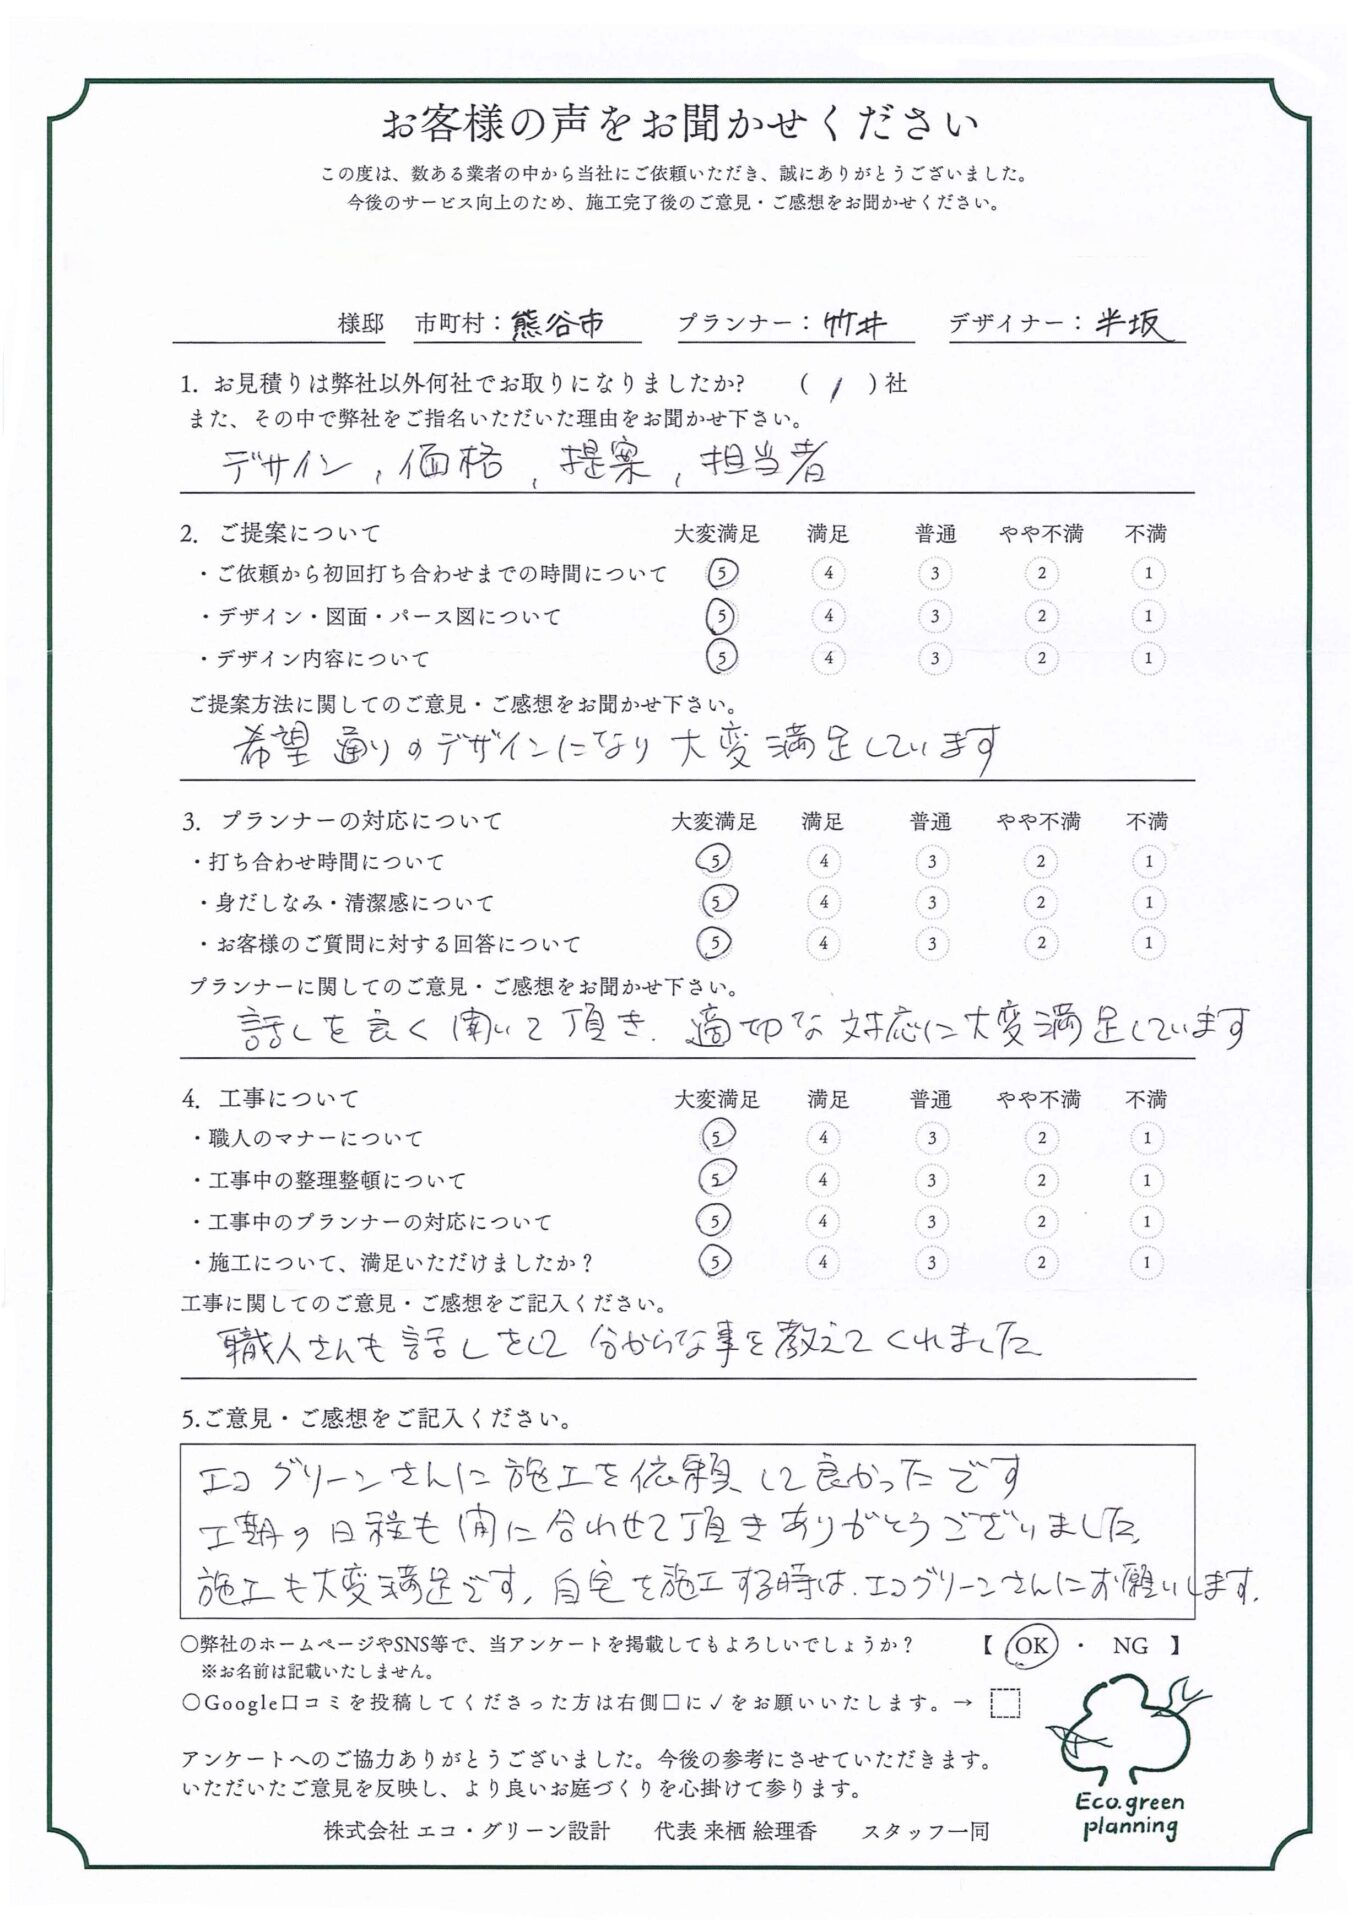 お客様の声をお聞かせください
この度は、数ある業者の中から当社にご依頼いただき、誠にありがとうございました。
今後のサービス向上のため、施工完了後のご意見・ご感想をお聞かせください。
様邸 市町村：熊谷市 プランナー：竹井 デザイナー：半坂
1. お見積りは弊社以外何社でお取りになりましたか? ( 1 )社
また、その中で弊社をご指名いただいた理由をお聞かせ下さい。
デザイン, 価格, 提案, 担当者
2. ご提案について 大変満足 満足 普通 やや不満 不満
・ご依頼から初回打ち合わせまでの時間について 5 4 3 2 1
・デザイン・図面・パース図について 5 4 3 2 1
・デザイン内容について 5 4 3 2 1
ご提案方法に関してのご意見・ご感想をお聞かせ下さい。
希望通りのデザインになり大変満足しています
3. プランナーの対応について 大変満足 満足 普通 やや不満 不満
・打ち合わせ時間について 5 4 3 2 1
・身だしなみ・清潔感について 5 4 3 2 1
・お客様のご質問に対する回答について 5 4 3 2 1
プランナーに関してのご意見・ご感想をお聞かせ下さい。
話しを良く聞いて頂き、適切な対応に大変満足しています
4. 工事について 大変満足 満足 普通 やや不満 不満
・職人のマナーについて 5 4 3 2 1
・工事中の整理整頓について 5 4 3 2 1
・工事中のプランナーの対応について 5 4 3 2 1
・施工について、満足いただけましたか？ 5 4 3 2 1
工事に関してのご意見・ご感想をご記入ください。
職人さんも話しをして分からな事を教えてくれました
5.ご意見・ご感想をご記入ください。
エコグリーンさんに施工を依頼して良かったです
工期の日程も間に合わせて頂きありがとうございました。
施工も大変満足です。自宅を施工する時は、エコグリーンさんにお願いします。
〇弊社のホームページやSNS等で、当アンケートを掲載してもよろしいでしょうか？ 【 OK ・ NG 】
※お名前は記載いたしません。
〇Google口コミを投稿してくださった方は右側□に✓をお願いいたします。→
アンケートへのご協力ありがとうございました。今後の参考にさせていただきます。
いただいたご意見を反映し、より良いお庭づくりを心掛けて参ります。
Eco.green
planning
株式会社 エコ・グリーン設計 代表 来栖 絵理香 スタッフ一同